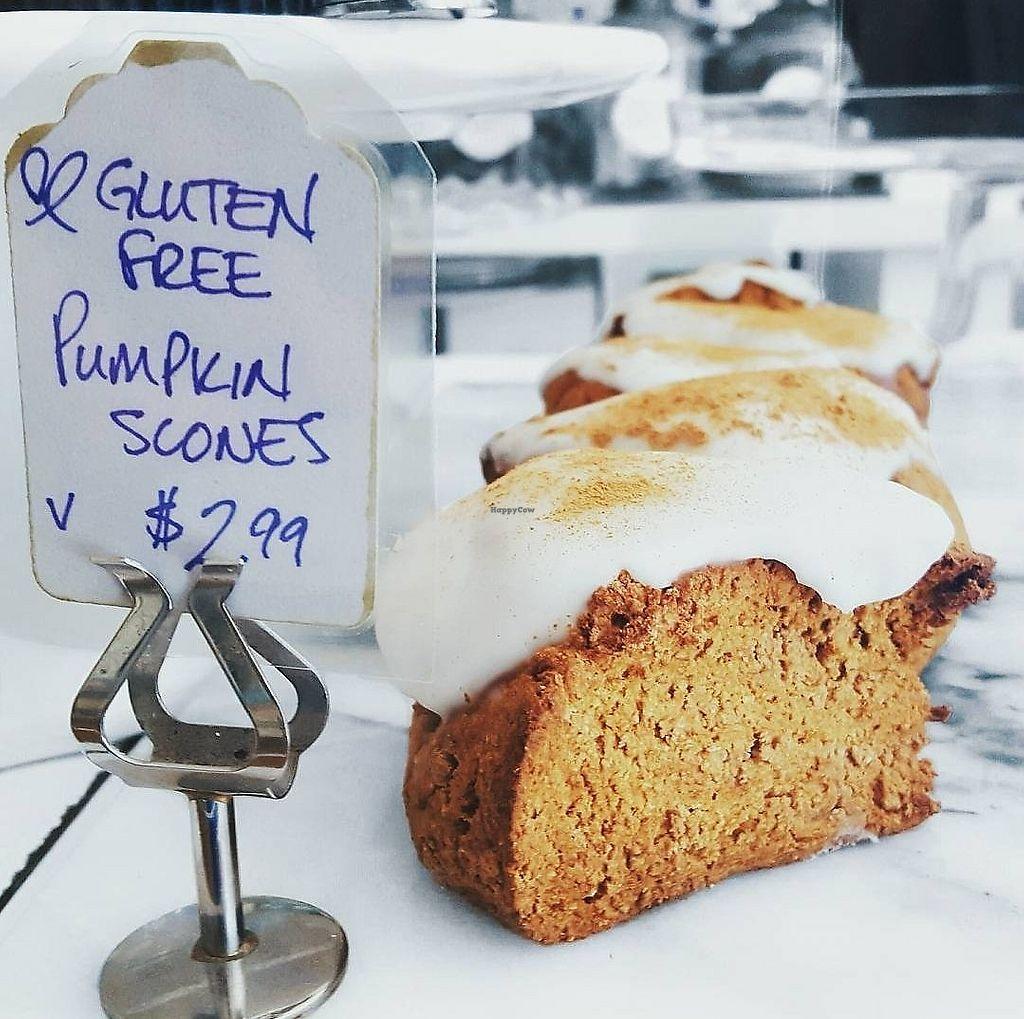 GLUTEN
FREE
PUMPKIN
SCONES
V $2.99
HappyCow